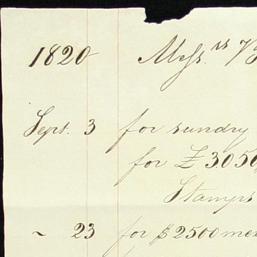 1820 Mess.rs
Sept. 3 for sundry
for £ 3050
Stamps
~ 23 for $2500